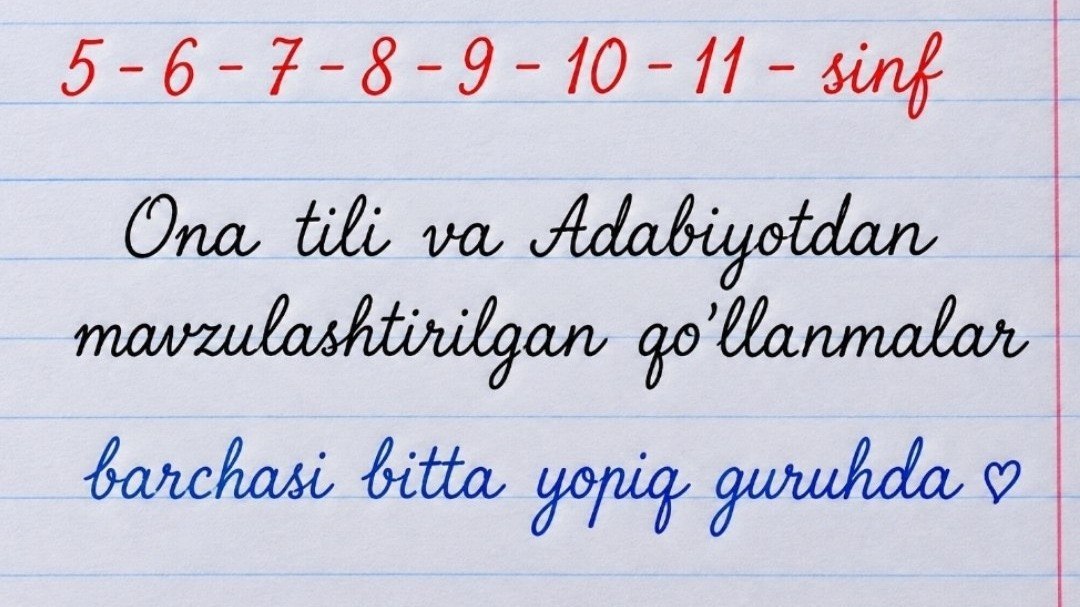 5 - 6 - 7 - 8 - 9 - 10 - 11 - sinf
Ona tili va Adabiyotdan
mavzulashtirilgan qo'llanmalar
barchasi bitta yopiq guruhda ♡